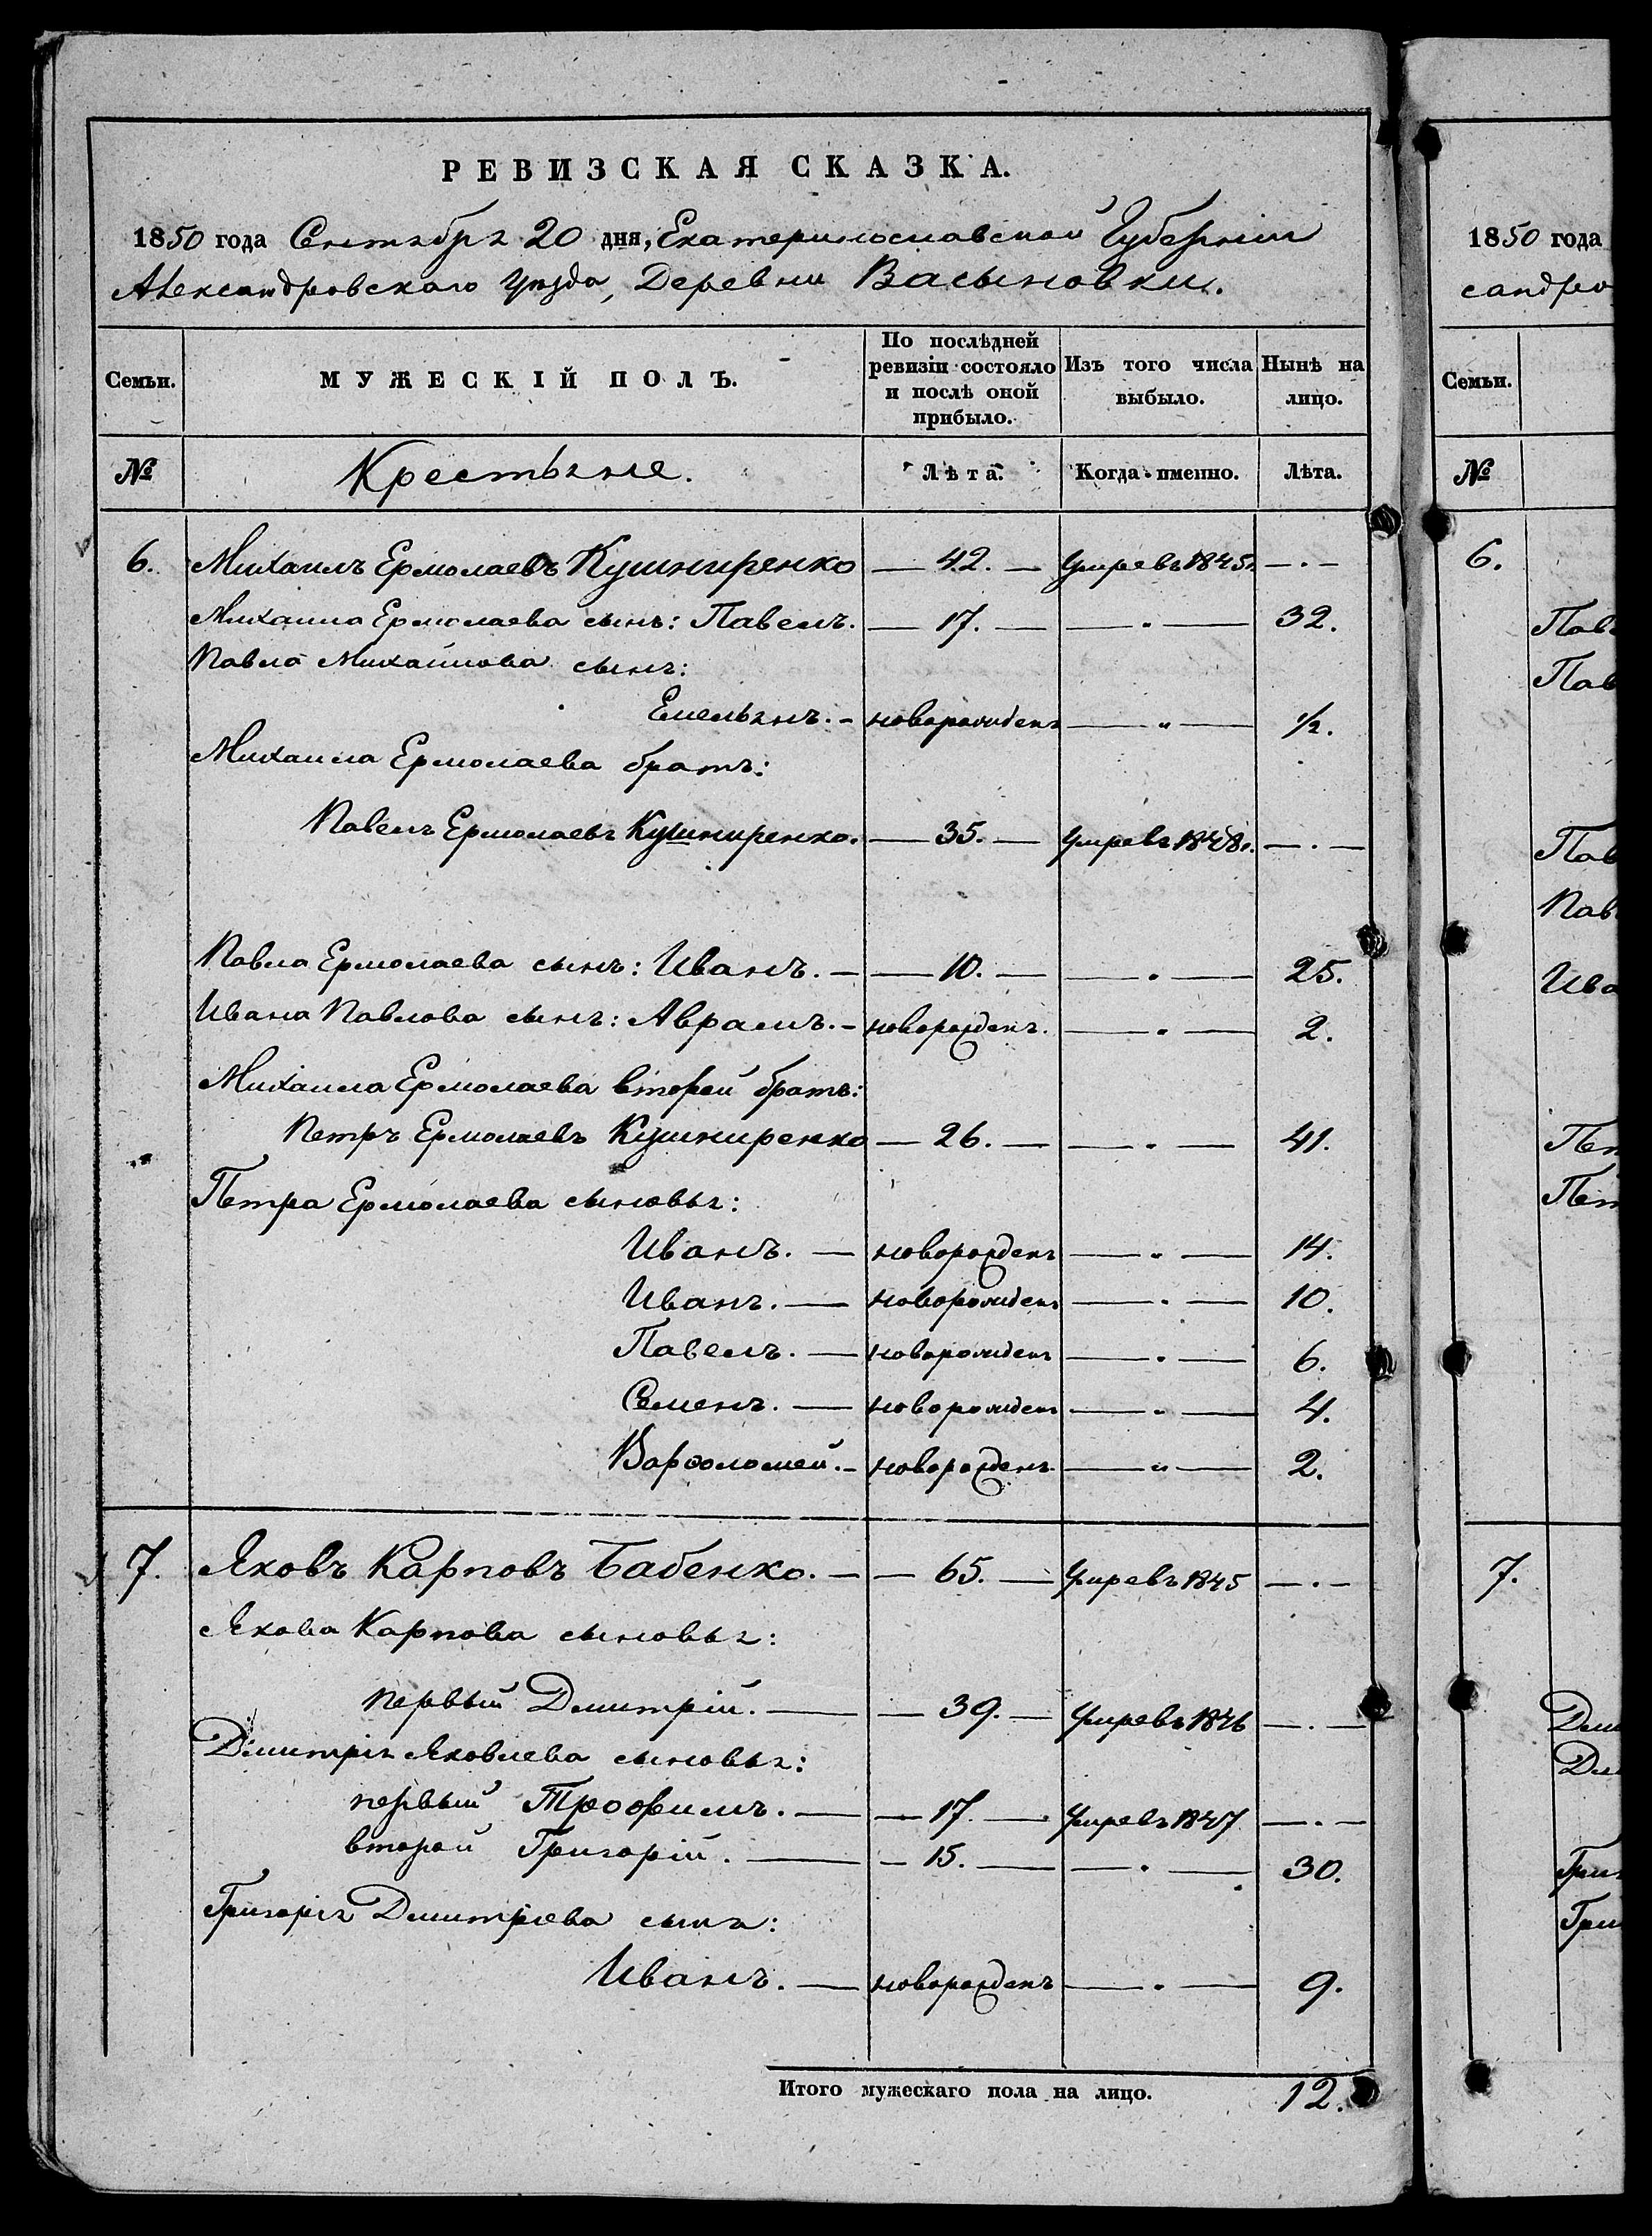 РЕВИЗСКАЯ СКАЗКА.
1850 года Сентября 20 дня, Екатеринославской Губерніи
Александровскаго Уѣзда, Деревни Васьиновки.
Семьи. МУЖЕСКІЙ ПОЛЪ. По послѣдней ревизіи состояло и послѣ оной прибыло. Изъ того числа выбыло. Нынѣ на лицо.
№ Крестьяне. Лѣта. Когда именно. Лѣта.
6. Михаилъ Ермолаевъ Кушниренко — 42. — Умре въ 1845г. — . —
Михаила Ермолаева сынъ: Павелъ. — 17. — — „ — 32.
Павла Михайлова сынъ:
Емельянъ. — новорожденъ — „ — 1/2.
Михаила Ермолаева братъ:
Павелъ Ермолаевъ Кушниренко. — 35. — Умре въ 1848г. — . —
Павла Ермолаева сынъ: Иванъ. — — 10. — — „ — 25.
Ивана Павлова сынъ: Аврамъ. — новорожденъ. — „ — 2.
Михаила Ермолаева второй братъ:
Петръ Ермолаевъ Кушниренко — 26. — — „ — 41.
Петра Ермолаева сыновья:
Иванъ. — новорожденъ — „ — 14.
Иванъ. — новорожденъ — „ — 10.
Павелъ. — новорожденъ — „ — 6.
Семенъ. — новорожденъ — „ — 4.
Варфоломей. — новорожденъ — „ — 2.
7. Яковъ Карповъ Бабенко. — — 65. — Умре въ 1845 — . —
Якова Карпова сыновья:
первый Дмитрій. — — 39. — Умре въ 1846 — . —
Дмитрія Яковлева сыновья:
первый Трофимъ. — — 17. — Умре въ 1847 — . —
второй Григорій. — — 15. — — „ — 30.
Григорія Дмитріева сынъ:
Иванъ. — новорожденъ — „ — 9.
Итого мужескаго пола на лицо. 12.
1850 года
сандро
Семьи.
№
6.
Пав
Пав
Пав
Пав
Ива
Пет
Пет
7.
Дми
Дми
Григ
Гри